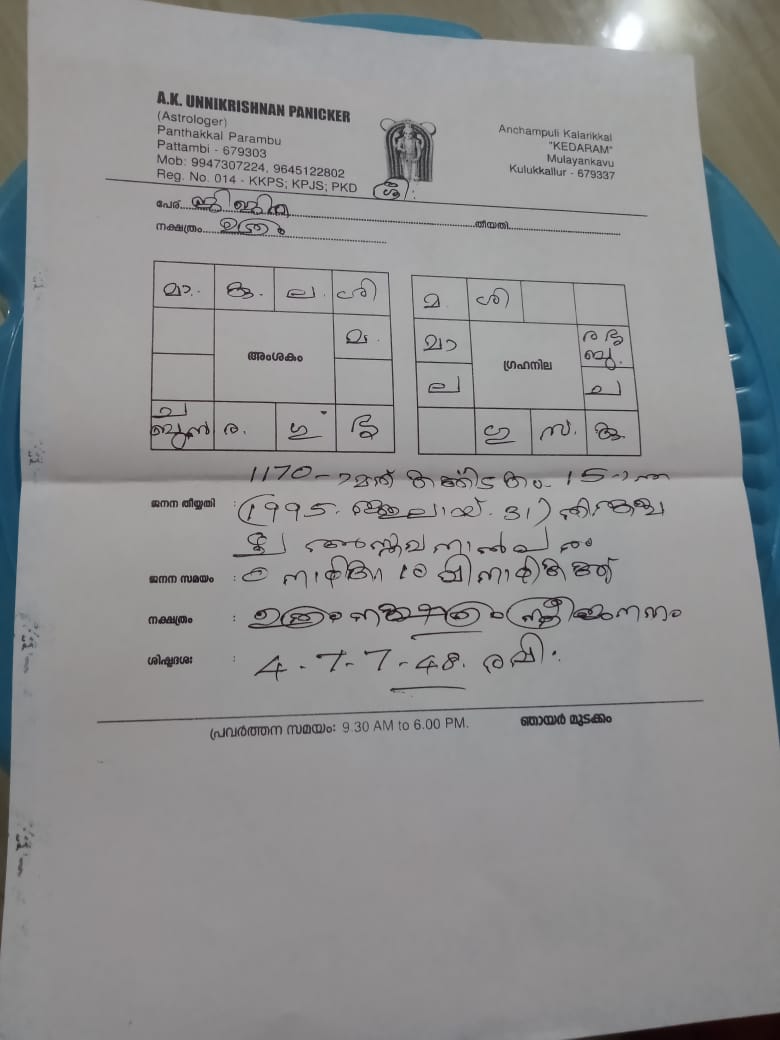 A.K. UNNIKRISHNAN PANICKER
(Astrologer)
Panthakkal Parambu
Pattambi - 679303
Mob: 9947307224, 9645122802
Reg. No. 014 - KKPS; KPJS; PKD
Anchampuli Kalarikkal
"KEDARAM"
Mulayankavu
Kulukkallur - 679337
ശ്രീ:
പേര് ജിജിന തീയതി
നക്ഷത്രം ഉത്രം
മാ. കു. ല. ശി
മ.
അംശകം
ച
ര. ഗു
മ ശി
മാ ര ശു
ബു.
ഗ്രഹനില
ല ച
ഗു സ. കു.
1170-ാമത് കർക്കിടകം 15-ാം
ജനന തീയ്യതി : (1995 ജൂലായ് 31) തിങ്കളാഴ്ച
അസ്തമനാൽപരം
ജനന സമയം : നാഴിക 10 വിനാഴികയ്ക്ക്
നക്ഷത്രം : ഉത്രം നക്ഷത്രം സ്ത്രീജനനം
ശിഷ്ടദശ : 4-7-7-48. രവി.
പ്രവർത്തന സമയം: 9.30 AM to 6.00 PM. ഞായർ മുടക്കം